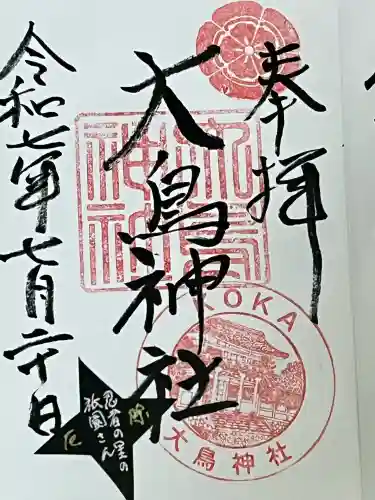 奉拝
大鳥神社
令和七年七月二十日
KOKA
大鳥神社
忍者の里の
祇園さん
厄除